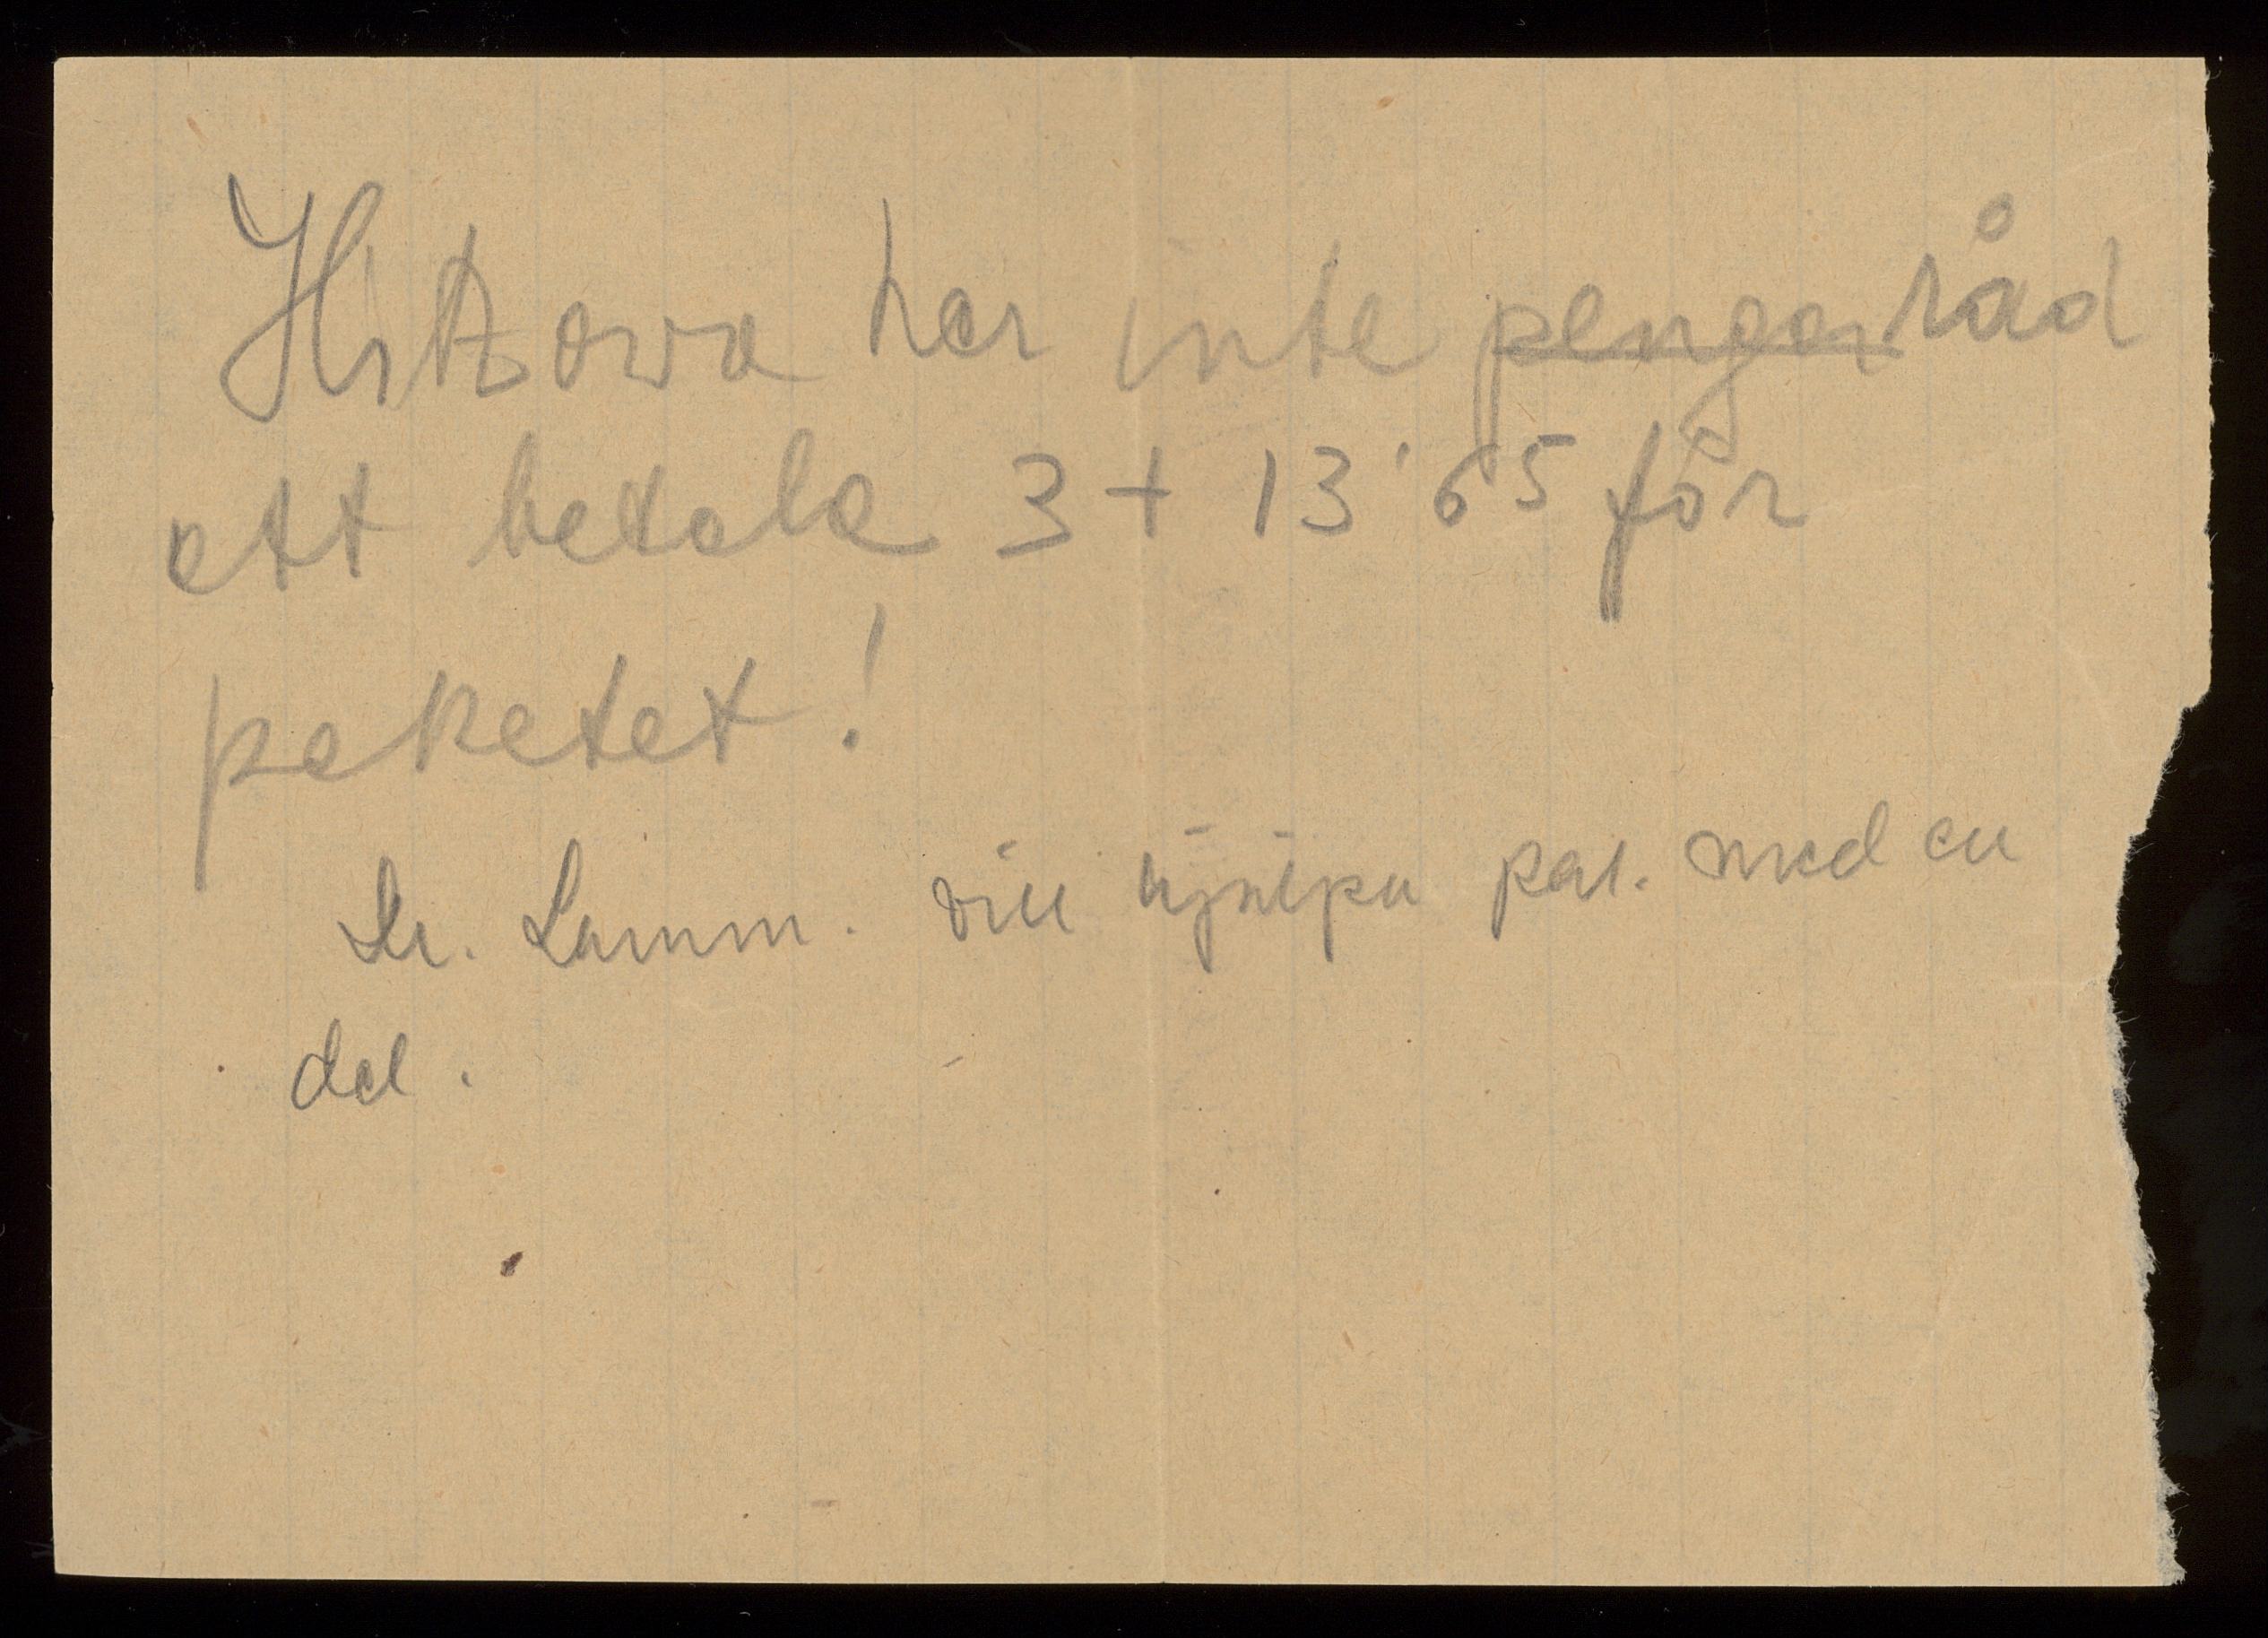 Hitzowa har inte pengar råd
att betala 3 + 13'65 för
paketet!
Dr. Lamm. vill hjälpa pat. med en
del.